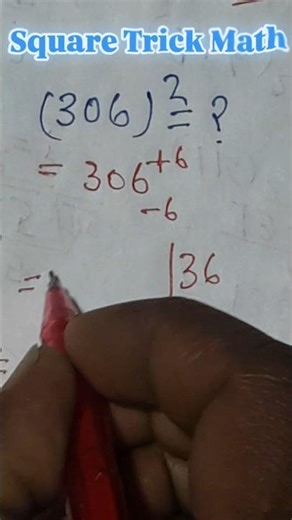 Square Trick Math
(306)² = ?
= 306⁺⁶
₋₆
= |36